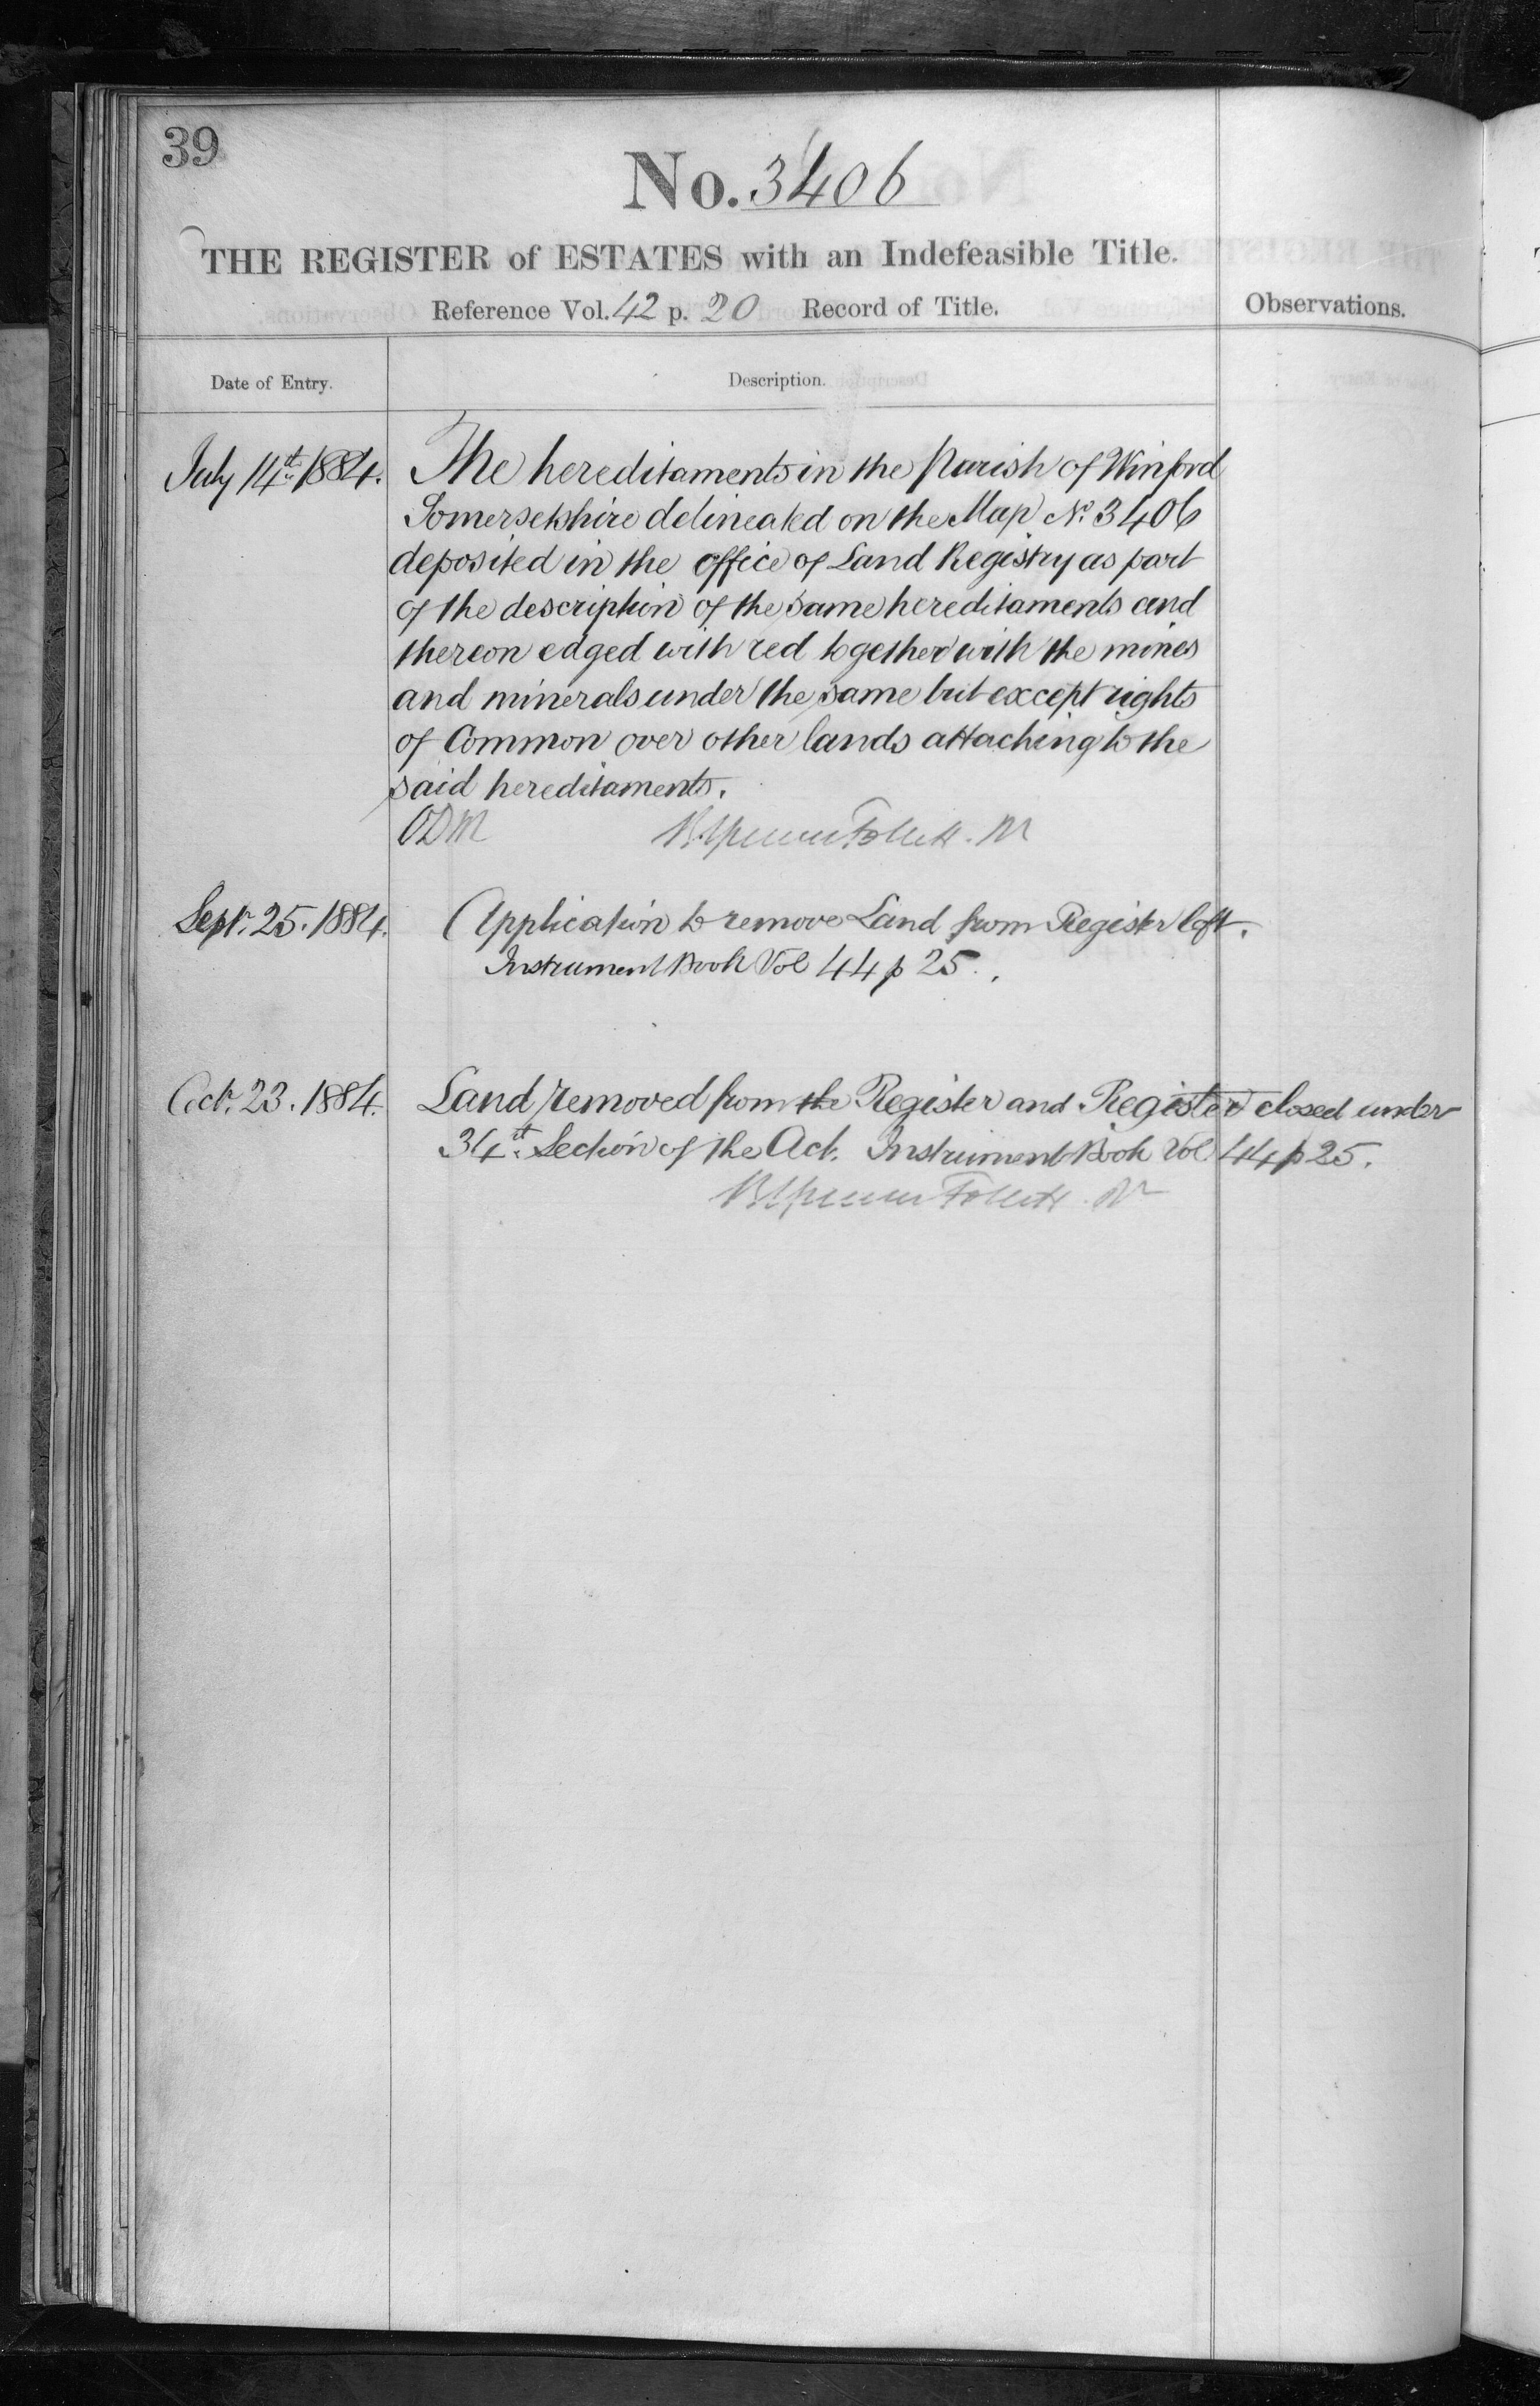 39
No. 3406
THE REGISTER of ESTATES with an Indefeasible Title.
Reference Vol. 42 p. 20 Record of Title.
Observations.
Date of Entry.
Description.
July 14th 1884. The hereditaments in the Parish of Winford
Somersetshire delineated on the Map No. 3406
deposited in the office of Land Registry as part
of the description of the same hereditaments and
thereon edged with red together with the mines
and minerals under the same but except rights
of Common over other lands attaching to the
said hereditaments.
ODM Follett
Sepr. 25. 1884. Application to remove Land from Register left.
Instrument Book Vol 44 p 25.
Oct. 23. 1884. Land removed from the Register and Register closed under
34th. Section of the Act. Instrument Book Vol 44 p 25.
Follett